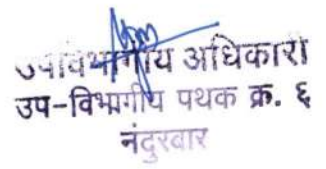 उपविभागीय अधिकारी
उप-विभागीय पथक क्र. ६
नंदुरबार